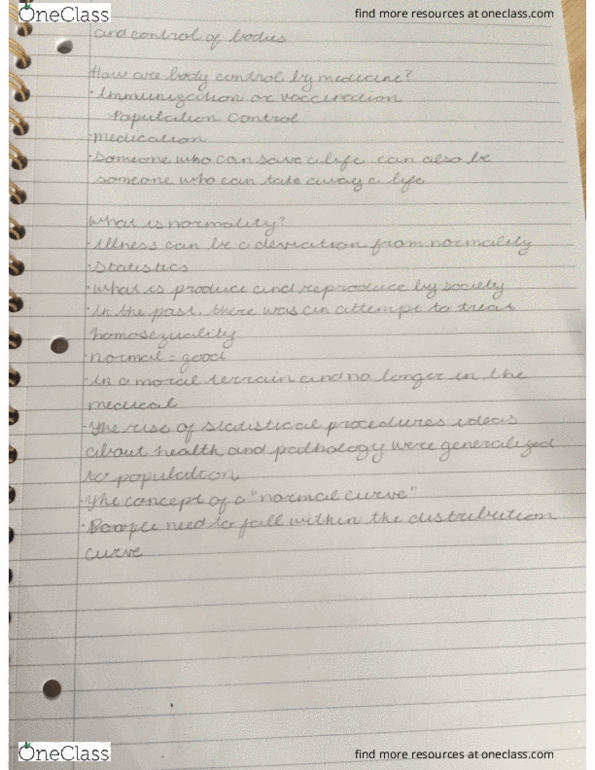 OneClass find more resources at oneclass.com
and control of bodies
How are body control by medicine?
· Immunization or vaccination
Population control
· medication
· Someone who can save a life can also be
someone who can take away a life
What is normality?
· illness can be a deviation from normality
· Statistics
· What is produce and reproduce by society
· In the past, there was an attempt to treat
homosexuality
· normal = good
· In a moral terrain and no longer in the
medical
· The rise of statistical procedures ideas
about health and pathology were generalized
to population
· The concept of a "normal curve"
· People need to fall within the distribution
curve
OneClass find more resources at oneclass.com